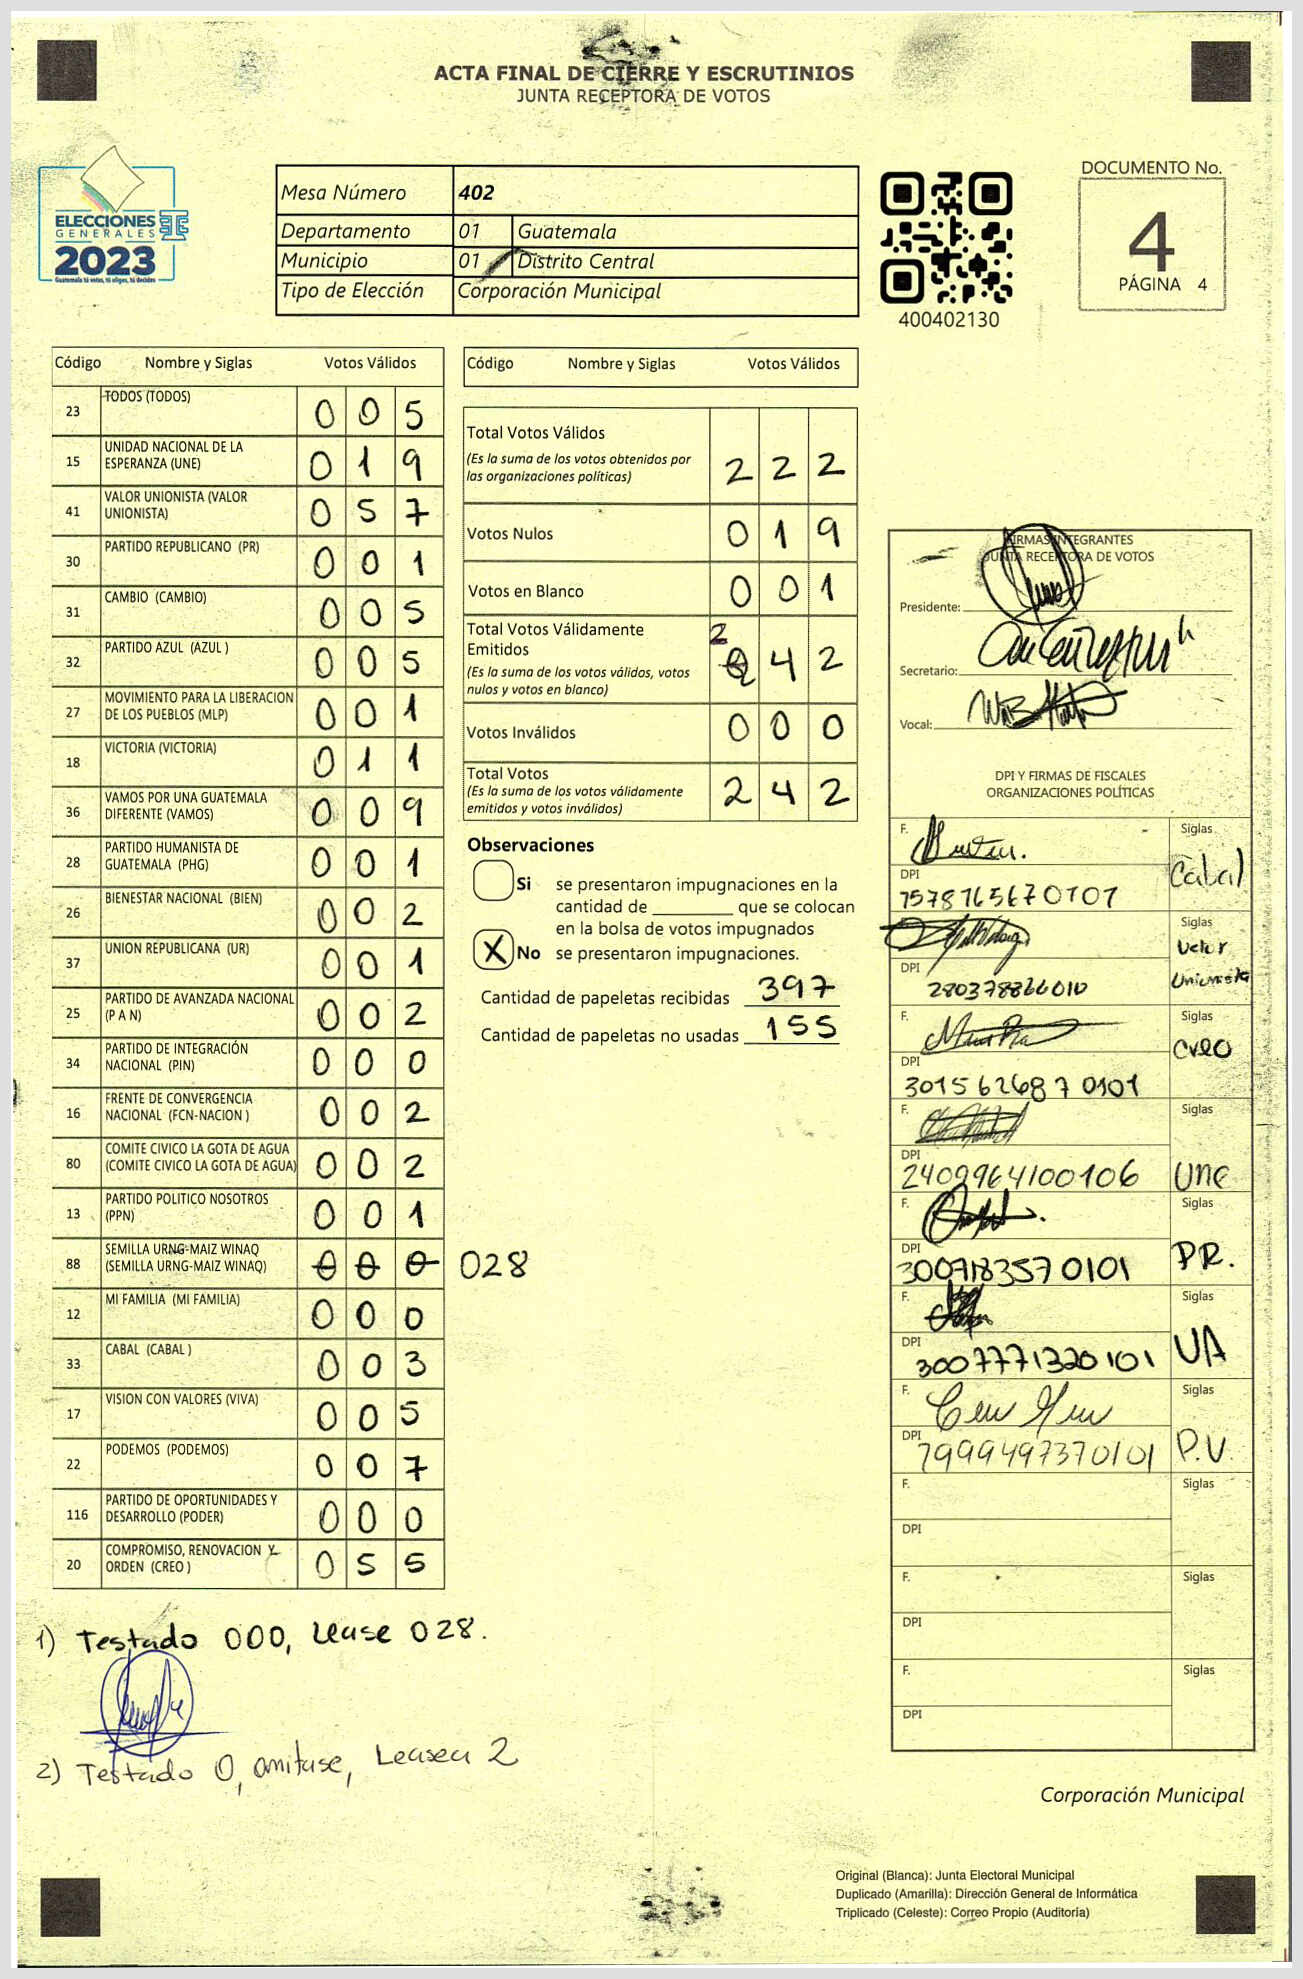 ACTA FINAL DE CIERRE Y ESCRUTINIOS
JUNTA RECEPTORA DE VOTOS
ELECCIONES
GENERALES
2023
Guatemala tú votas, tú eliges, tú decides
Mesa Número 402
Departamento 01 Guatemala
Municipio 01 Distrito Central
Tipo de Elección Corporación Municipal
400402130
DOCUMENTO No.
4
PÁGINA 4
Código Nombre y Siglas Votos Válidos
23 TODOS (TODOS) 0 0 5
15 UNIDAD NACIONAL DE LA
ESPERANZA (UNE) 0 1 9
41 VALOR UNIONISTA (VALOR
UNIONISTA) 0 5 7
30 PARTIDO REPUBLICANO (PR) 0 0 1
31 CAMBIO (CAMBIO) 0 0 5
32 PARTIDO AZUL (AZUL ) 0 0 5
27 MOVIMIENTO PARA LA LIBERACION
DE LOS PUEBLOS (MLP) 0 0 1
18 VICTORIA (VICTORIA) 0 1 1
36 VAMOS POR UNA GUATEMALA
DIFERENTE (VAMOS) 0 0 9
28 PARTIDO HUMANISTA DE
GUATEMALA (PHG) 0 0 1
26 BIENESTAR NACIONAL (BIEN) 0 0 2
37 UNION REPUBLICANA (UR) 0 0 1
25 PARTIDO DE AVANZADA NACIONAL
(P A N) 0 0 2
34 PARTIDO DE INTEGRACIÓN
NACIONAL (PIN) 0 0 0
16 FRENTE DE CONVERGENCIA
NACIONAL (FCN-NACION ) 0 0 2
80 COMITE CIVICO LA GOTA DE AGUA
(COMITE CIVICO LA GOTA DE AGUA) 0 0 2
13 PARTIDO POLITICO NOSOTROS
(PPN) 0 0 1
88 SEMILLA URNG-MAIZ WINAQ
(SEMILLA URNG-MAIZ WINAQ) 0 0 0 028
12 MI FAMILIA (MI FAMILIA) 0 0 0
33 CABAL (CABAL ) 0 0 3
17 VISION CON VALORES (VIVA) 0 0 5
22 PODEMOS (PODEMOS) 0 0 7
116 PARTIDO DE OPORTUNIDADES Y
DESARROLLO (PODER) 0 0 0
20 COMPROMISO, RENOVACION Y
ORDEN (CREO ) 0 5 5
1) Testado 000, Lease 028.
2) Testado 0, omitase, Leasea 2
Código Nombre y Siglas Votos Válidos
Total Votos Válidos
(Es la suma de los votos obtenidos por
las organizaciones políticas) 2 2 2
Votos Nulos 0 1 9
Votos en Blanco 0 0 1
Total Votos Válidamente
Emitidos 2
(Es la suma de los votos válidos, votos
nulos y votos en blanco) 0 4 2
Votos Inválidos 0 0 0
Total Votos
(Es la suma de los votos válidamente
emitidos y votos inválidos) 2 4 2
Observaciones
Si se presentaron impugnaciones en la
cantidad de ________ que se colocan
en la bolsa de votos impugnados
X No se presentaron impugnaciones.
Cantidad de papeletas recibidas 397
Cantidad de papeletas no usadas 155
FIRMAS INTEGRANTES
JUNTA RECEPTORA DE VOTOS
Presidente:
Secretario:
Vocal:
DPI Y FIRMAS DE FISCALES
ORGANIZACIONES POLÍTICAS
F. Siglas
DPI Cabal
F. Siglas
Valor
DPI Unionista
280378866010
F. Siglas
DPI CREO
3015626870101
F. Siglas
DPI
2409964100106 UNE
F. Siglas
DPI PR.
3007183570101
F. Siglas
DPI UA
3007771320101
F. Siglas
DPI P.V.
7999497370101
F. Siglas
DPI
F. Siglas
DPI
F. Siglas
DPI
Corporación Municipal
Original (Blanca): Junta Electoral Municipal
Duplicado (Amarilla): Dirección General de Informática
Triplicado (Celeste): Correo Propio (Auditoría)